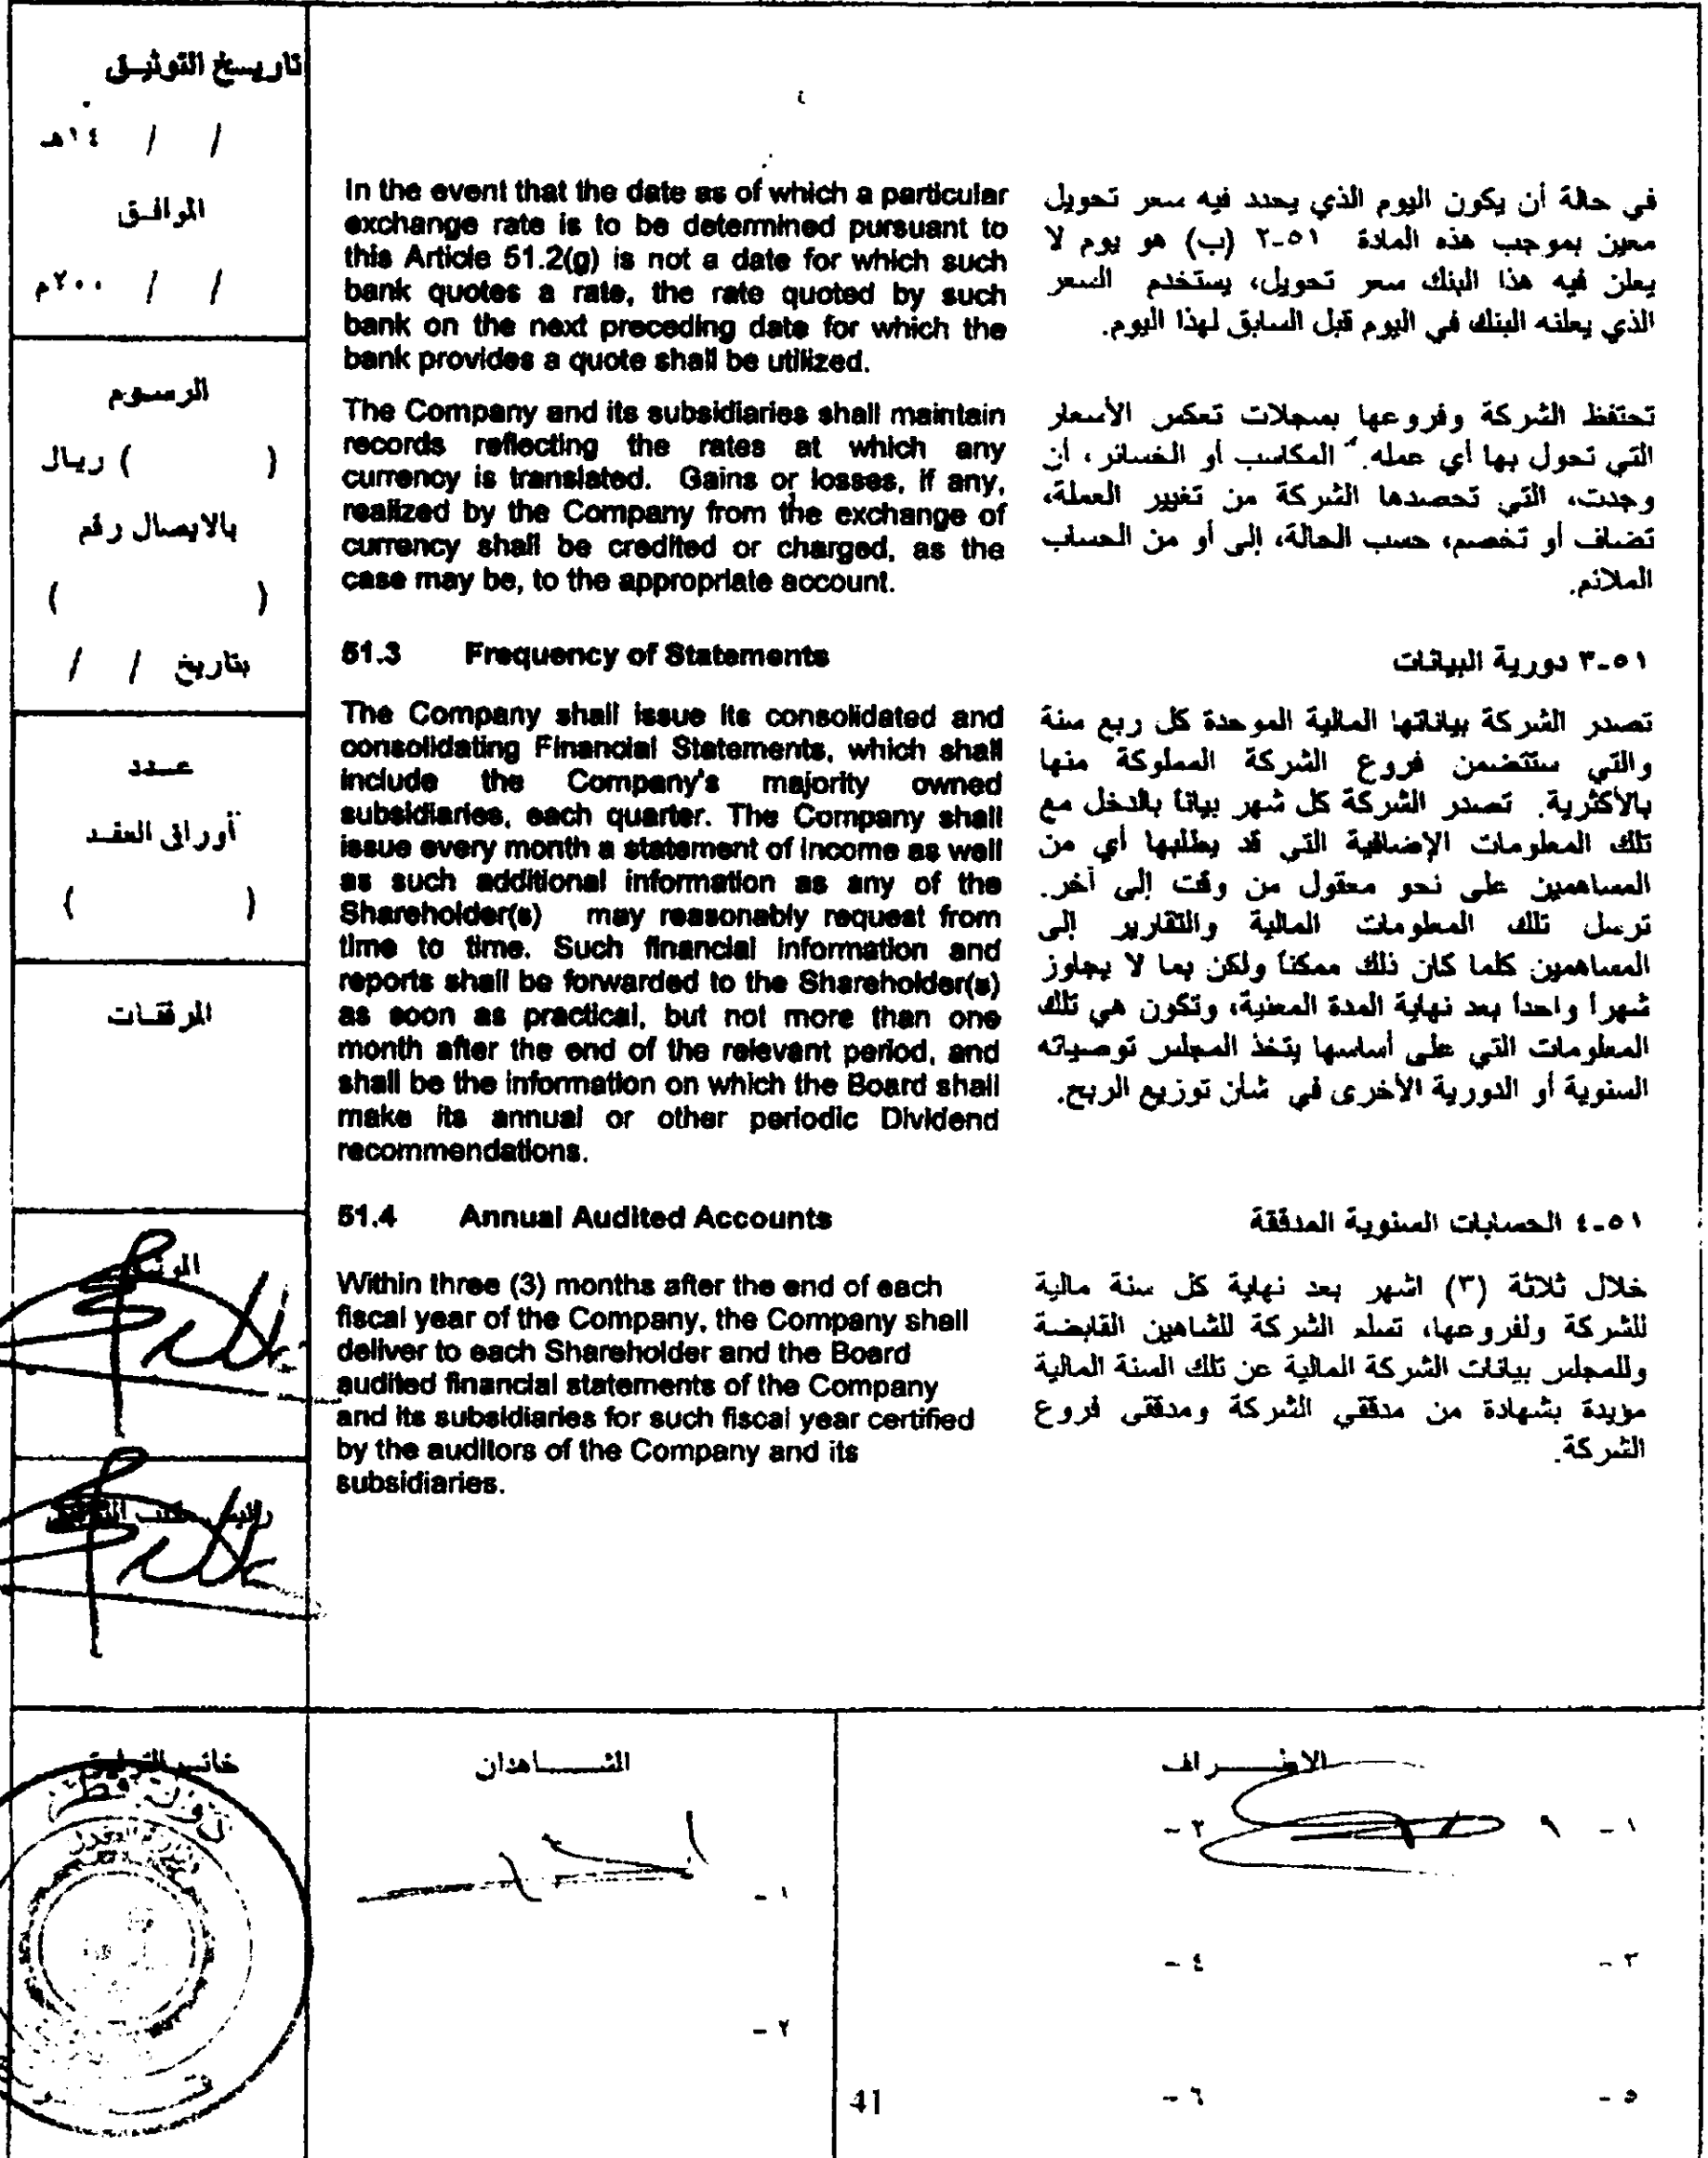 تاريخ التوثيق
/ / ١٤هـ
الموافق
/ / ٢٠٠م
الرسوم
( ) ريال
بالايصال رقم
( )
بتاريخ / /
عدد
أوراق العقد
( )
المرفقات
In the event that the date as of which a particular
exchange rate is to be determined pursuant to
this Article 51.2(g) is not a date for which such
bank quotes a rate, the rate quoted by such
bank on the next preceding date for which the
bank provides a quote shall be utilized.
The Company and its subsidiaries shall maintain
records reflecting the rates at which any
currency is translated. Gains or losses, if any,
realized by the Company from the exchange of
currency shall be credited or charged, as the
case may be, to the appropriate account.
51.3 Frequency of Statements
The Company shall issue its consolidated and
consolidating Financial Statements, which shall
include the Company's majority owned
subsidiaries, each quarter. The Company shall
issue every month a statement of income as well
as such additional information as any of the
Shareholder(s) may reasonably request from
time to time. Such financial information and
reports shall be forwarded to the Shareholder(s)
as soon as practical, but not more than one
month after the end of the relevant period, and
shall be the information on which the Board shall
make its annual or other periodic Dividend
recommendations.
51.4 Annual Audited Accounts
Within three (3) months after the end of each
fiscal year of the Company, the Company shall
deliver to each Shareholder and the Board
audited financial statements of the Company
and its subsidiaries for such fiscal year certified
by the auditors of the Company and its
subsidiaries.
في حالة أن يكون اليوم الذي يحدد فيه سعر تحويل
معين بموجب هذه المادة ٥١-٢ (ب) هو يوم لا
يعلن فيه هذا البنك سعر تحويل، يستخدم السعر
الذي يعلنه البنك في اليوم قبل السابق لهذا اليوم.
تحتفظ الشركة وفروعها بسجلات تعكس الأسعار
التي تحول بها أي عمله. المكاسب أو الخسائر، أن
وجدت، التي تحصدها الشركة من تغيير العملة،
تضاف أو تخصم، حسب الحالة، إلى أو من الحساب
الملائم.
٥١-٣ دورية البيانات
تصدر الشركة بياناتها المالية الموحدة كل ربع سنة
والتي ستتضمن فروع الشركة المملوكة منها
بالأكثرية. تصدر الشركة كل شهر بياناً بالدخل مع
تلك المعلومات الإضافية التي قد يطلبها أي من
المساهمين على نحو معقول من وقت إلى آخر.
ترسل تلك المعلومات المالية والتقارير إلى
المساهمين كلما كان ذلك ممكناً ولكن بما لا يجاوز
شهراً واحداً بعد نهاية المدة المعنية، وتكون هي تلك
المعلومات التي على أساسها يتخذ المجلس توصياته
السنوية أو الدورية الأخرى في شأن توزيع الربح.
٥١-٤ الحسابات السنوية المدققة
خلال ثلاثة (٣) اشهر بعد نهاية كل سنة مالية
للشركة ولفروعها، تسلم الشركة للشاهين القابضة
وللمجلس بيانات الشركة المالية عن تلك السنة المالية
مؤيدة بشهادة من مدققي الشركة ومدققى فروع
الشركة.
خاتم التوثيق
الشاهدان
١ -
٢ -
الاطراف
١ -
٢ -
٣ -
٤ -
٥ -
٦ -
41